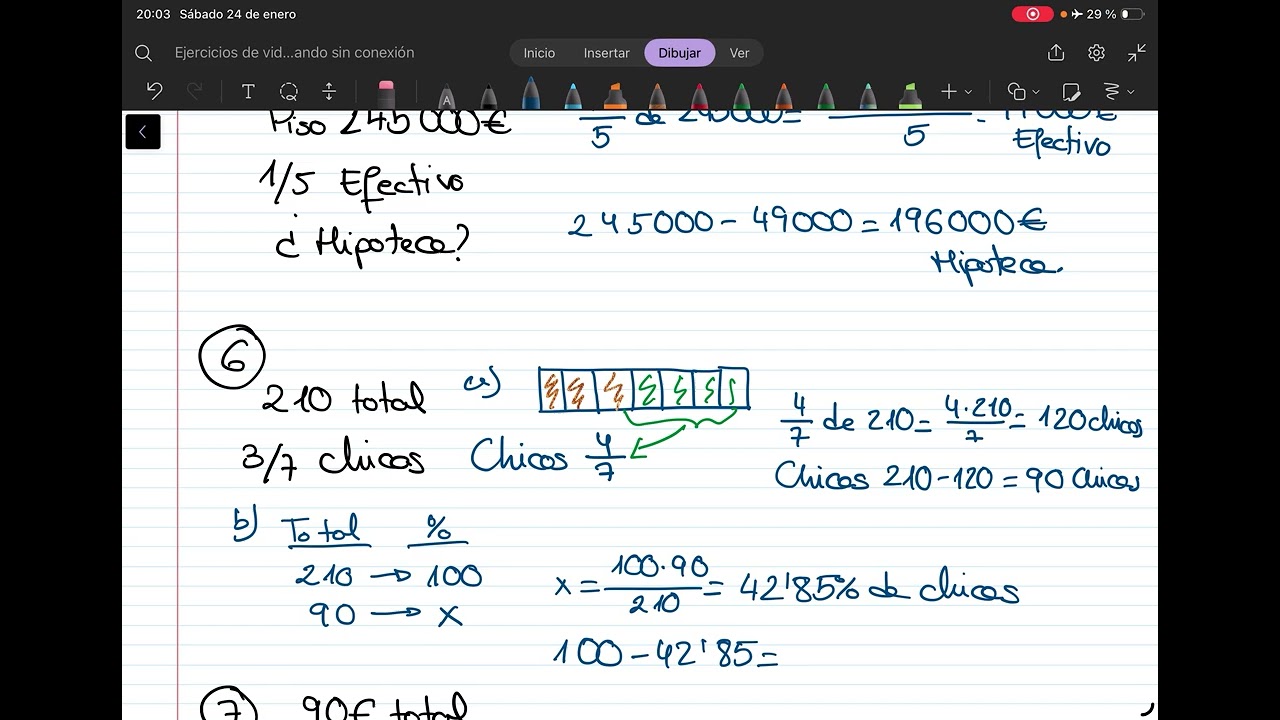 20:03 Sábado 24 de enero
29 %
Ejercicios de vid...ando sin conexión
Inicio Insertar Dibujar Ver
T
A
Piso 245000€
1/5 Efectivo
¿ Hipoteca?
5 de 245000= 5 =
Efectivo
245000 - 49000 = 196000€
Hipoteca.
6
210 total
3/7 chicas
a)
Chicos 4/7
4/7 de 210 = 4·210/7 = 120 chicos
Chicas 210-120 = 90 chicas
b) Total %
210 → 100
90 → x
x = 100·90/210 = 42'85% de chicas
100 - 42'85 =
7 90€ total